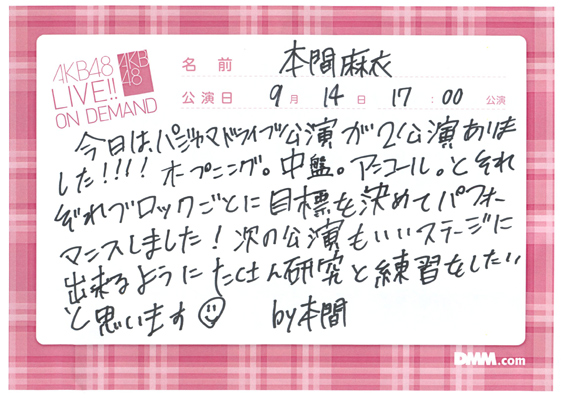 AKB48
LIVE!!
ON DEMAND
AKB
48
名前 本間麻衣
公演日 9月14日 17:00公演
今日は、パジャマドライブ公演が2公演ありま
した!!!! オープニング。中盤。アンコール。とそれ
ぞれブロックごとに目標を決めてパフォー
マンスしました！次の公演もいいステージに
出来るようにたくさん研究と練習をしたい
と思います☺ by本間
DMM.com